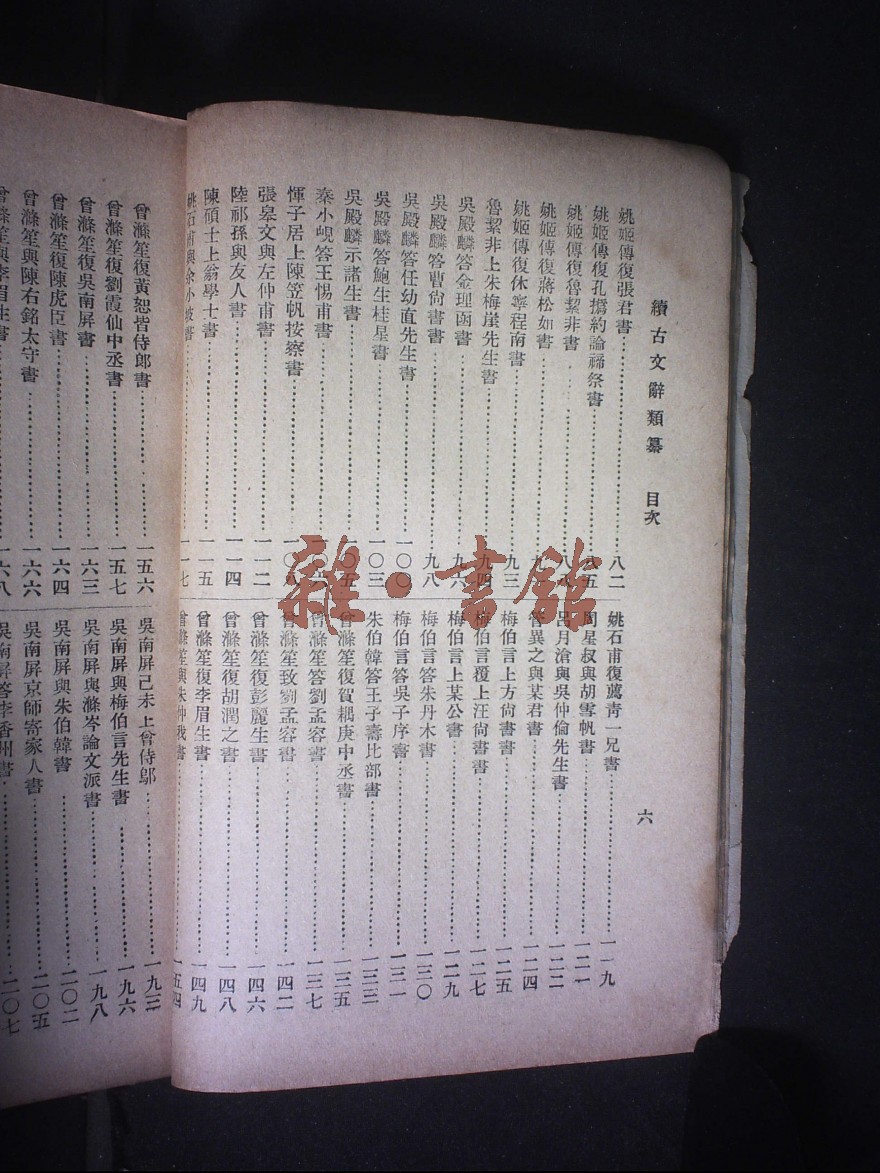 續古文辭類纂　目次
六
姚姬傳復張君書……八二
姚姬傳復孔撝約論禘祭書……八五
姚姬傳復魯絜非書……八八
姚姬傳復蔣松如書……九
姚姬傳復休寧程南書……九三
魯絜非上朱梅崖先生書……九四
吳殿麟答金理函書……九六
吳殿麟答曹尙書書……九八
吳殿麟答任幼直先生書……一〇〇
吳殿麟答鮑生桂星書……一〇三
吳殿麟示諸生書……一〇五
秦小峴答王惕甫書……一〇六
惲子居上陳笠帆按察書……一〇八
張皋文與左仲甫書……一一二
陸祁孫與友人書……一一四
陳碩士上翁學士書……一一五
姚石甫與余小坡書……一一七
姚石甫復萬靑一兄書……一一九
周星叔與胡雪帆書……一二一
呂月滄與吳仲倫先生書……一二二
管異之與某君書……一二四
梅伯言上方尙書書……一二五
梅伯言覆上汪尙書書……一二七
梅伯言上某公書……一二九
梅伯言答朱丹木書……一三〇
梅伯言答吳子序書……一三一
朱伯韓答王子壽比部書……一三三
曾滌笙復賀耦庚中丞書……一三五
曾滌笙答劉孟容書……一三七
曾滌笙致劉孟容書……一四二
曾滌笙復彭麗生書……一四六
曾滌笙復胡潤之書……一四八
曾滌笙復李眉生書……一四九
曾滌笙與朱仲我書……一五四
曾滌笙復黃恕皆侍郎書……一五六
曾滌笙復劉霞仙中丞書……一五七
曾滌笙復吳南屛書……一六三
曾滌笙復陳虎臣書……一六四
曾滌笙與陳右銘太守書……一六六
曾滌笙與李眉生書……一六八
吳南屛己未上曾侍郎……一九三
吳南屛與梅伯言先生書……一九六
吳南屛與滌岑論文派書……一九八
吳南屛與朱伯韓書……二〇二
吳南屛京師寄家人書……二〇五
吳南屛答李香州書……二〇七
雜·書館